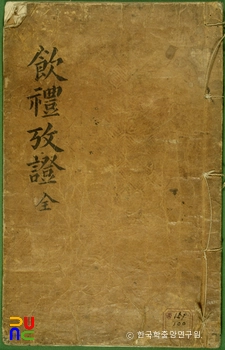 飮禮攷證 全
ⓒ 한국학중앙연구원